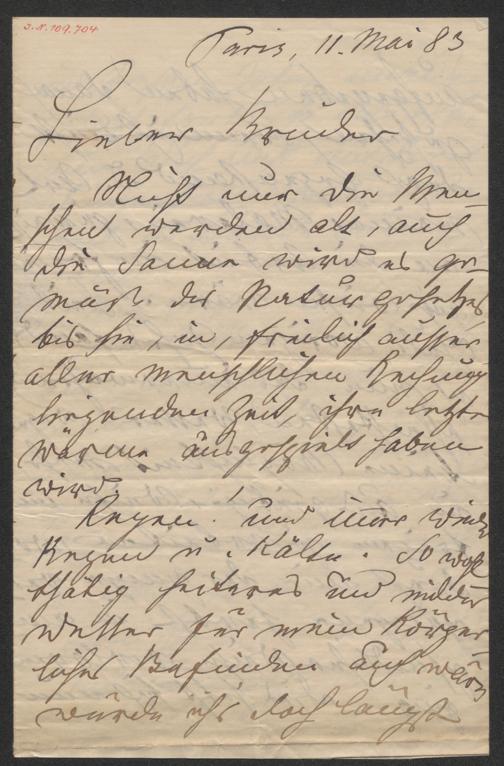 J.N. 109.704
Paris, 11. Mai 83
Lieber Bruder
Nicht nur die Men-
schen werden alt, auch
die Sonne wird es ge-
mäß der Naturgesetze,
bis sie, in, freilich ausser
aller menschlichen Rechnung
liegenden Zeit, ihre letzte
Wärme ausgespielt haben
wird.
Regen! und immer wieder
Regen u. Kälte. So wohl
thätig heiteres und milder
Wetter für mein Körper-
liches Befinden auch wäre
würde ich doch längst